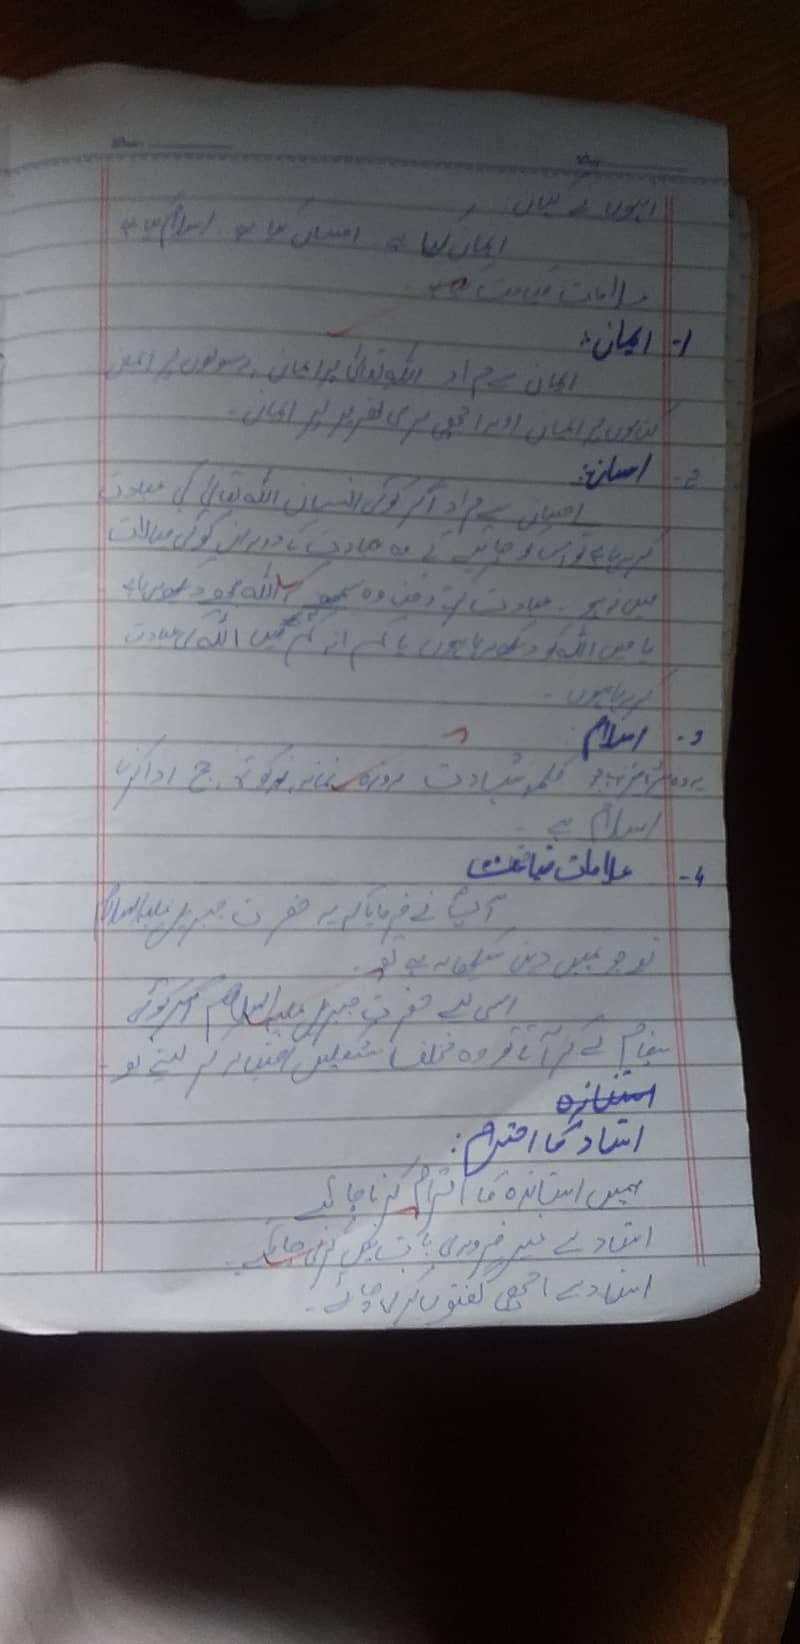 ایمان کیا ہے احسان کیا ہے اسلام کیا ہے
علامات قیامت
1- ایمان:
ایمان سے مراد اللہ تعالیٰ پر ایمان، رسولوں پر ایمان
کتابوں پر ایمان اور اچھی بری تقدیر پر ایمان۔
2- احسان:
احسان سے مراد اگر کوئی انسان اللہ تعالیٰ کی عبادت
کر رہا ہے تو اس کو چاہیے کے وہ عبادت کا دوران کوئی خیالات
میں نہ ہو۔ عبادت کرتے وقت وہ اللہ دیکھ رہا ہے
یا میں اللہ کو دیکھ رہا ہوں یا کم از کم میں اللہ کی عبادت
کر رہا ہوں۔
3- اسلام
کلمہ شہادت روزہ نماز زکوٰۃ حج ادا کرنا
اسلام ہے۔
4- علامات قیامت
آپؐ نے فرمایا کہ یہ حضرت جبریل علیہ السلام
جو ہمیں دین سیکھانے
اسی لیے حضرت جبریل علیہ السلام اگر کوئی
پیغام لے کر آتا تو وہ مختلف شکلیں اختیار کر لیتے
استاذہ
استاد کا احترام:
ہمیں اساتذہ کا احترام کرنا چاہیے
استاد سے غیر ضروری بات نہیں کرنی چاہیے۔
استاد سے اچھی گفتگو کرنی چاہیے۔